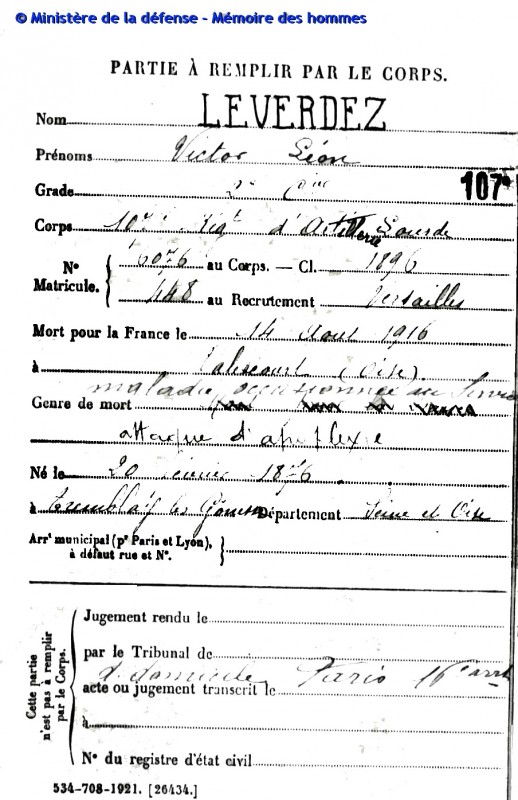 © Ministère de la défense - Mémoire des hommes
PARTIE À REMPLIR PAR LE CORPS.
Nom LEVERDEZ
Prénoms Victor Léon
Grade 2e
107e
Corps 107e d'Artillerie Lourde
N° Matricule. { 6076 au Corps. — Cl. 1896
448 au Recrutement Versailles
Mort pour la France le 14 Aout 1916
à (Oise)
maladie occasionnée au Service
Genre de mort
attaque d'apoplexie
Né le 20 février 1876
à Tremblay les Gonesse Département Seine et Oise
Arrt municipal (pr Paris et Lyon), à défaut rue et N°. {
Cette partie n'est pas à remplir par le Corps. {
Jugement rendu le
par le Tribunal de
d. domicile Paris 16e arrt
acte ou jugement transcrit le
à
N° du registre d'état civil
534-708-1921. [26434.]